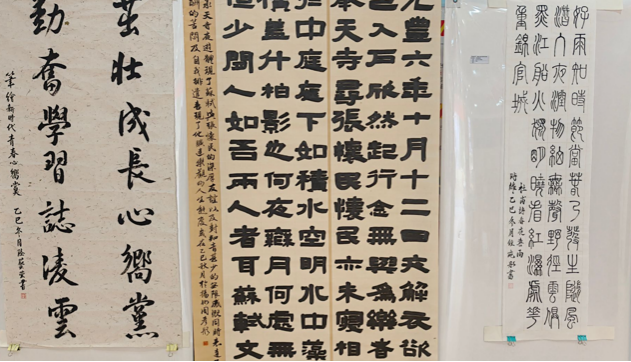 茁壯成長心嚮黨
勤奮學習誌凌雲
筆繪新時代青春心嚮黨
元豐六年十月十二日夜解衣欲
色入戶欣然起行念無與為樂者
承天寺尋張懷民懷民亦未寢相
於中庭庭下如積水空明水中藻
橫蓋竹柏影也何夜無月何處無
但少閒人如吾兩人者耳蘇軾文
好雨知時節當春乃發生隨風
潛入夜潤物細無聲野徑雲俱
黑江船火獨明曉看紅濕處花
重錦官城
杜甫詩春夜喜雨